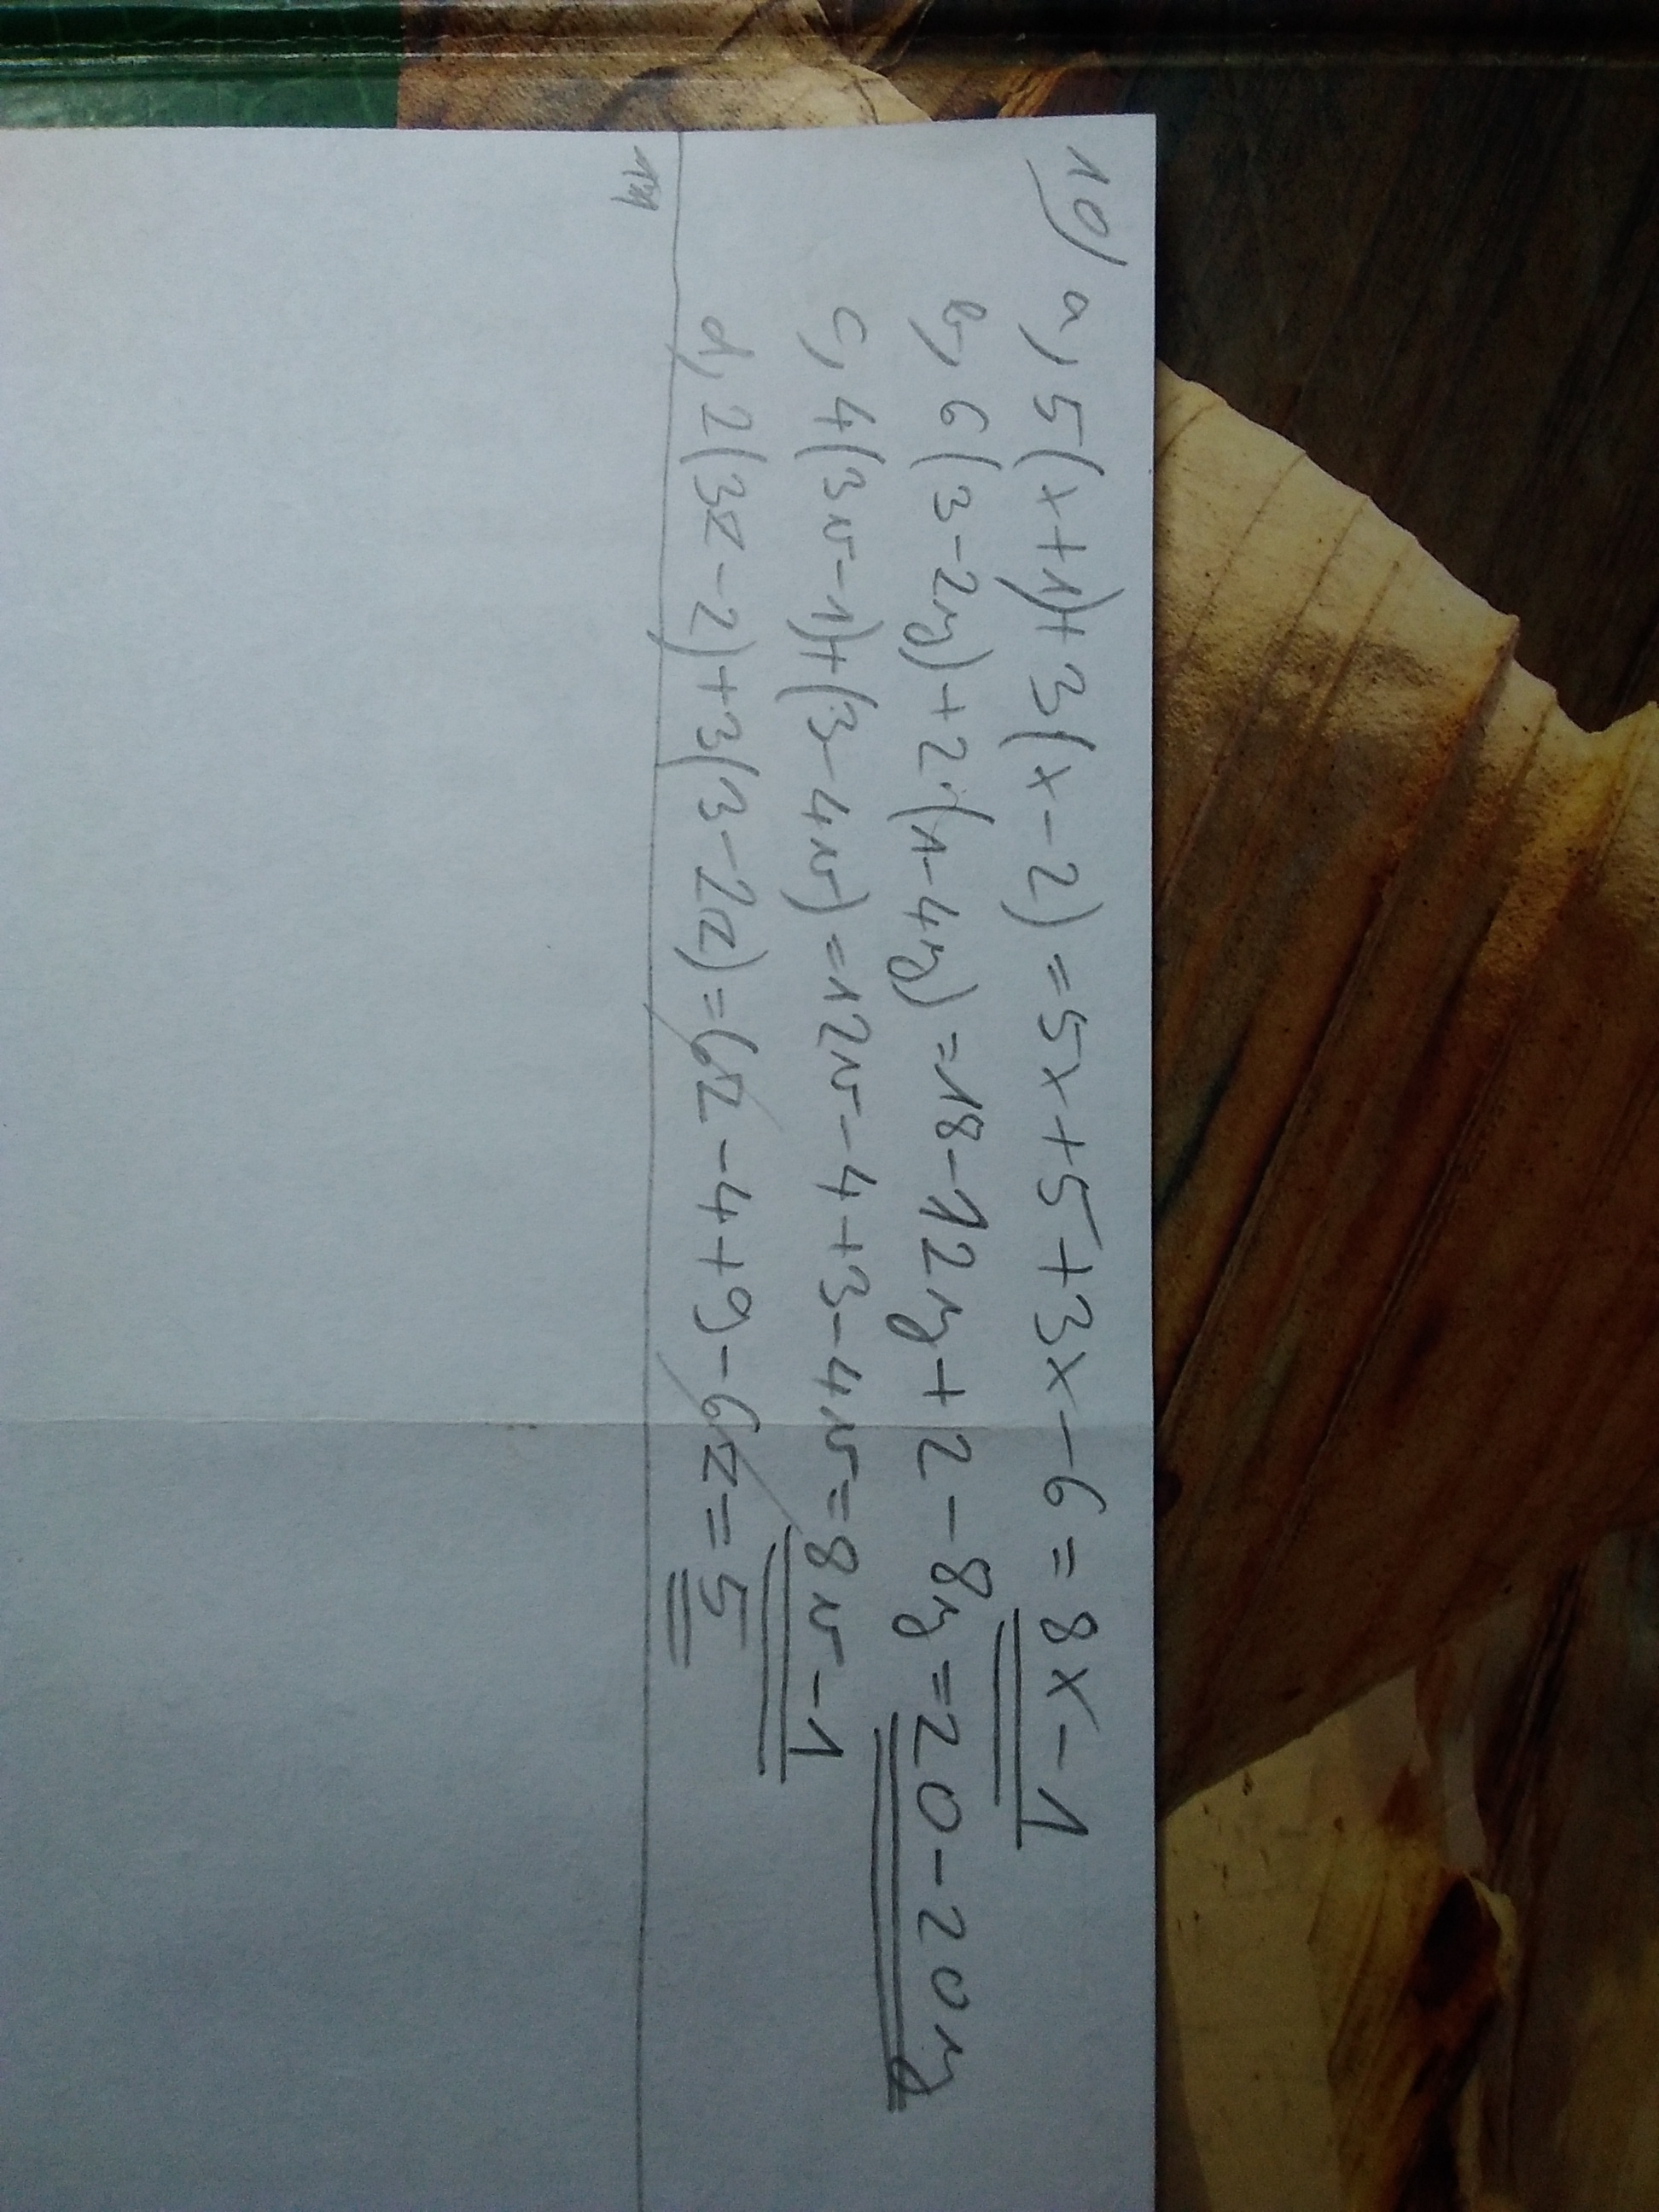 10) a, 5(x+1)+3(x-2)=5x+5+3x-6=8x-1
b, 6(3-2y)+2·(1-4y)=18-12y+2-8y=20-20y
c, 4(3v-1)+(3-4v)=12v-4+3-4v=8v-1
d, 2(3z-2)+3(3-2z)=6z-4+9-6z=5